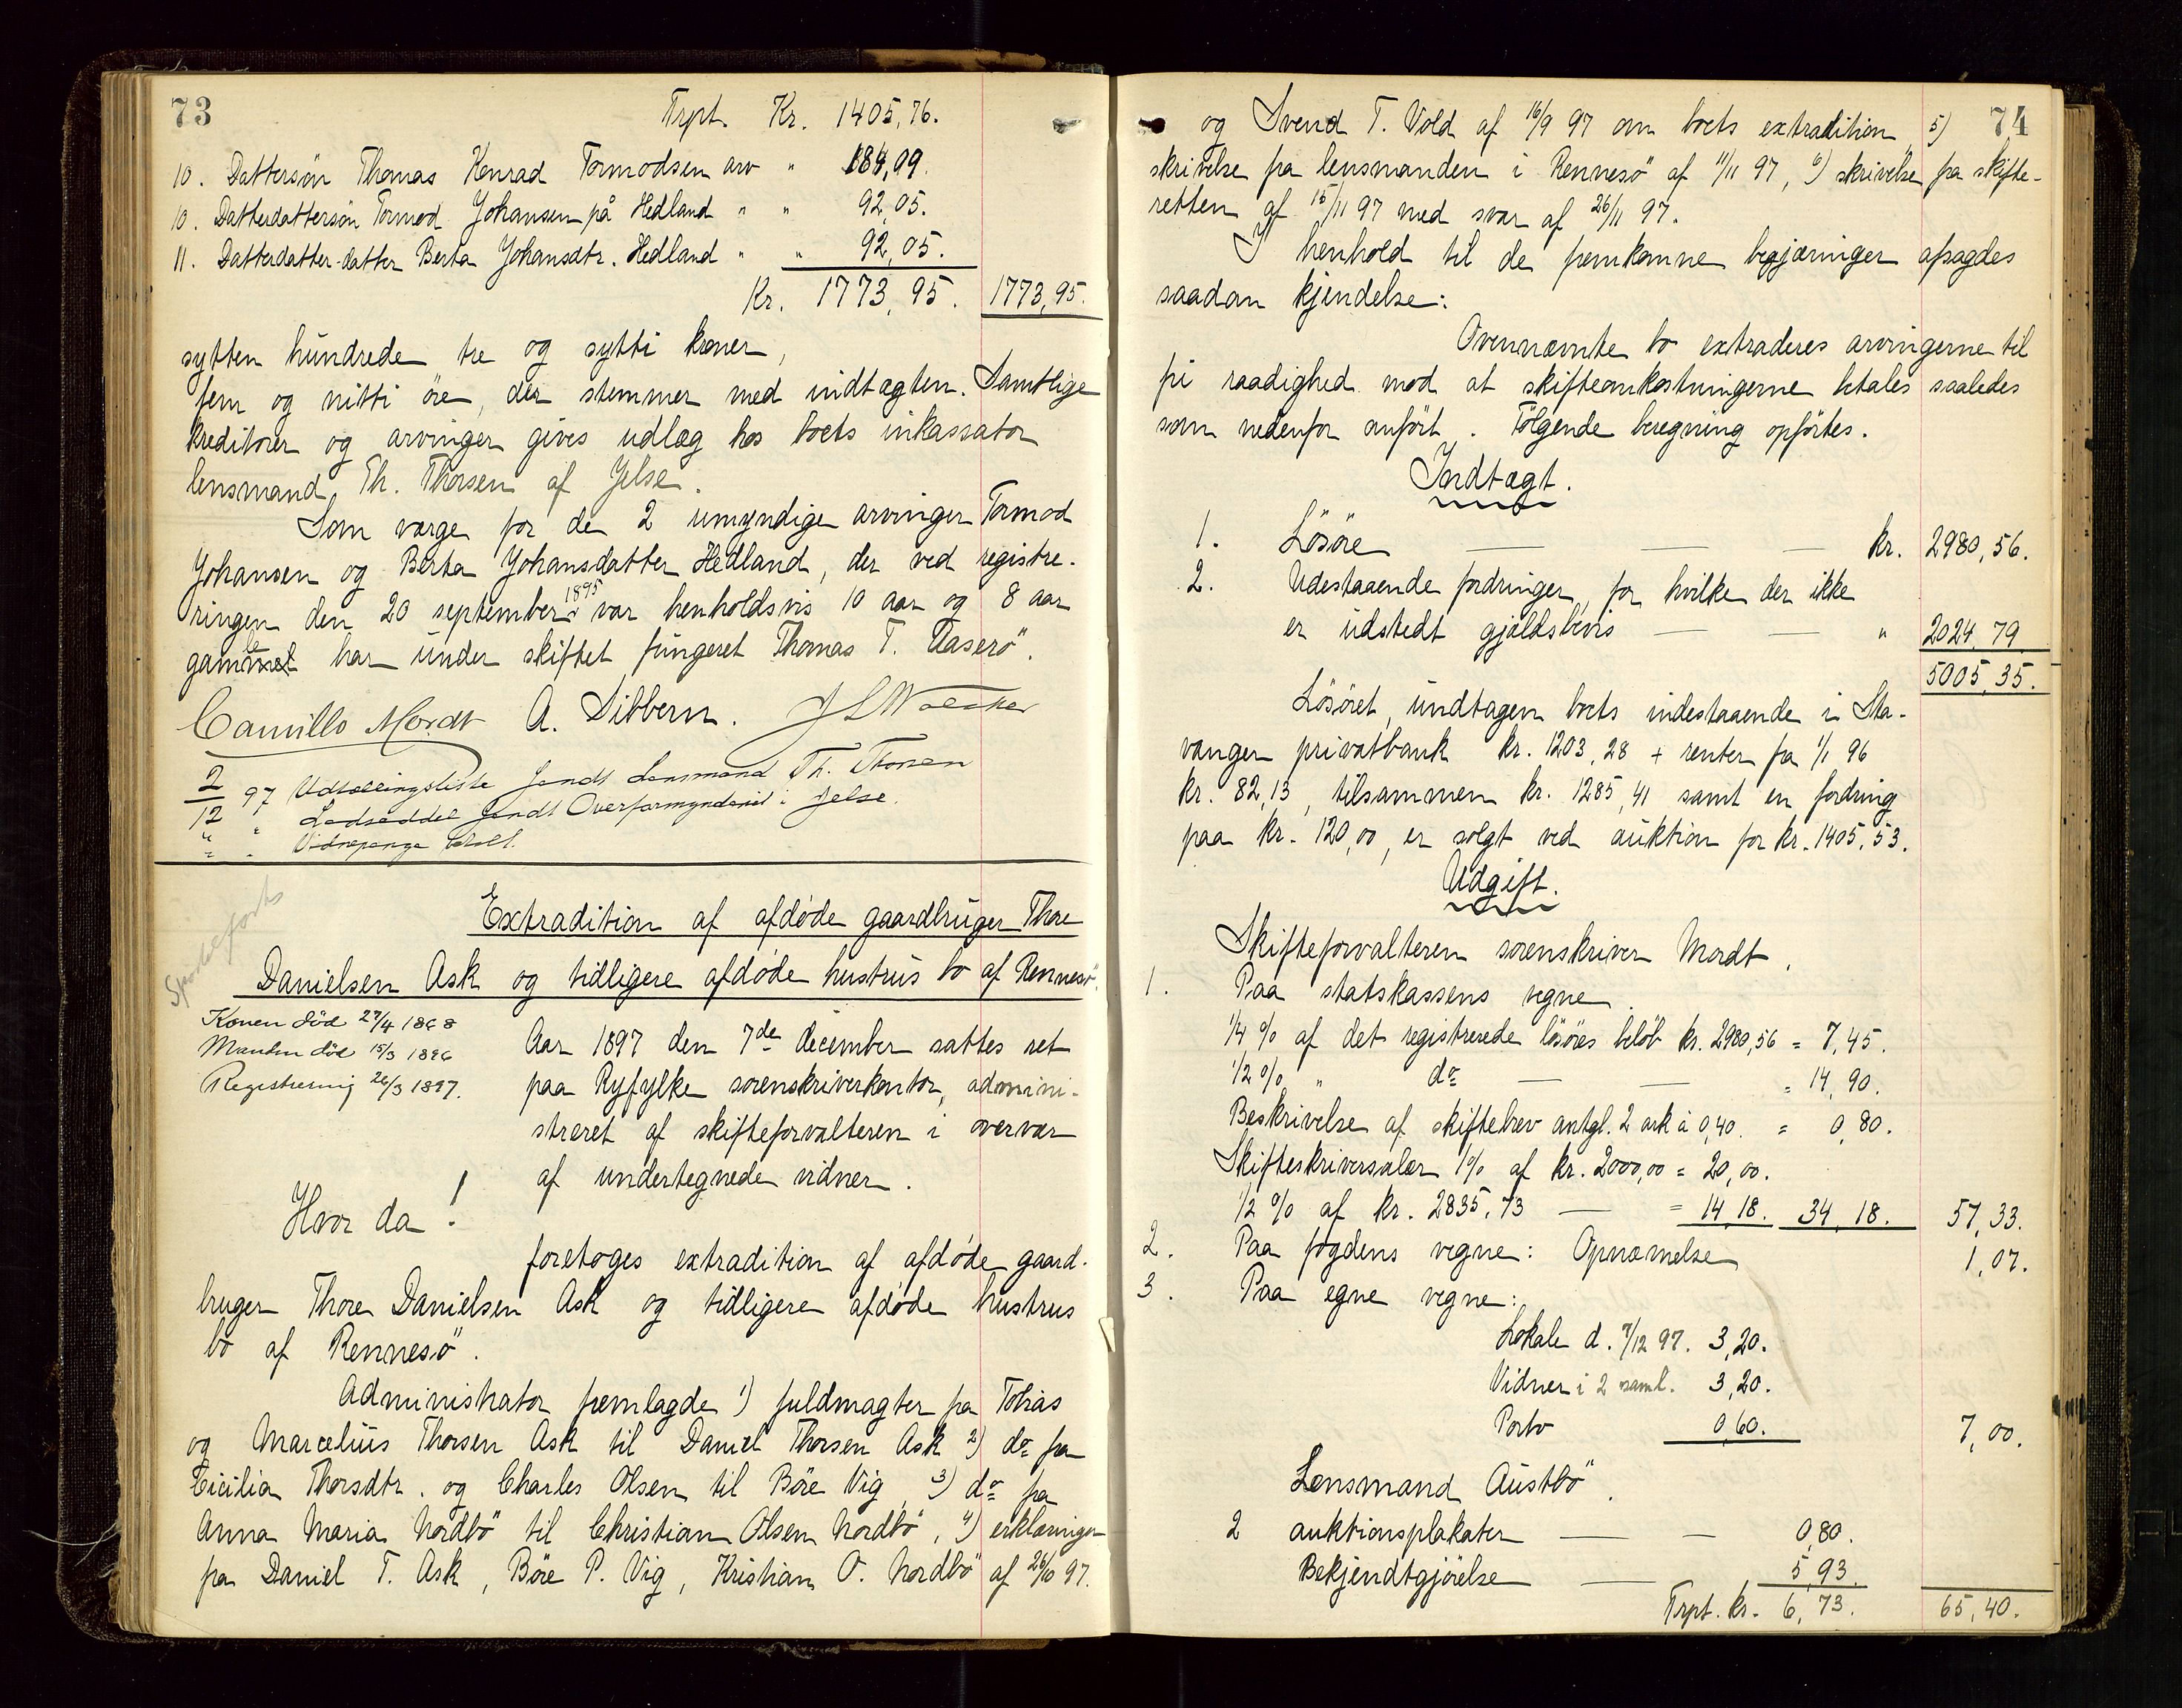 73
Trpt. Kr. 1405,76.
10. Dattersön Thomas Konrad Tormodsen arv " 184,09.
10. Datterdattersön Tormod Johansen på Hedland " " 92,05.
11. Datterdatter-datter Berta Johansdtr. Hedland " " 92,05.
Kr. 1773,95. 1773,95.
sytten hundrede tre og sytti kroner,
fem og nitti öre, der stemmer med indtægten. Samtlige
kreditorer og arvinger gives udlæg hos boets inkassator
lensmand Th. Thorsen af Jelse.
Som værge for de 2 umyndige arvinger Tormod
Johansen og Berta Johansdatter Hedland, der ved registre-
ringen den 20 september 1895 var henholdsvis 10 aar og 8 aar
gamle har under skiftet fungeret Thomas T. Aaserö.
Camillo Mordt A. Sibbern.
2/12 97 Udlodningsliste sendt Lensmand Th. Thorsen
" " Lodseddel sendt Overformynderiet i Jelse.
" " Vidnepenge betalt.
Extradition af afdöde gaardbruger Thore
Danielsen Ask og tidligere afdöde hustrus bo af Rennesö.
Konen död 27/4 1868
Manden död 15/3 1896
Registrering 26/3 1897.
Aar 1897 den 7de december sattes ret
paa Ryfylke sorenskriverkontor, admini-
streret af skifteforvalteren i overvær
af undertegnede vidner.
Hvor da!
foretoges extradition af afdöde gaard-
bruger Thore Danielsen Ask og tidligere afdöde hustrus
bo af Rennesö.
Administrator fremlagde 1) fuldmagter fra Tobias
og Marcelius Thorsen Ask til Daniel Thorsen Ask 2) do fra
Cicilia Thorsdtr. og Charles Olsen til Böre Vig, 3) do fra
Anna Maria Nordbö til Christian Olsen Nordbö, 4) erklæringer
fra Daniel T. Ask, Böre P. Vig, Kristian O. Nordbö af 26/10 97.
74
og Svend T. Vold af 16/9 97 om boets extradition 5)
skrivelse fra lensmanden i Rennesö af 11/11 97, 6) skrivelse fra skifte-
retten af 15/11 97 med svar af 26/11 97.
I henhold til de fremkomne begjæringer afsagdes
saadan kjendelse:
Ovennævnte bo extraderes arvingerne til
fri raadighed mod at skifteomkostningerne betales saaledes
som nedenfor anfört. Fölgende beregning opförtes.
Indtægt.
1. Lösöre — — — kr. 2980,56.
2. Udestaaende fordringer, for hvilke der ikke
er udstedt gjældsbevis — — " 2024,79
5005,35.
Lösöret, undtagen boets indestaaende i Sta-
vanger privatbank kr. 1203,28 + renter fra 1/1 96
kr. 82,13, tilsammen kr. 1285,41 samt en fordring
paa kr. 120,00, er solgt ved auktion for kr. 1405,53.
Udgift.
Skifteforvalteren sorenskriver Mordt.
1. Paa statskassens vegne
1/4 % af det registrerede lösöres belöb kr. 2980,56 = 7,45.
1/2 % " do — — = 14,90.
Beskrivelse af skiftebrev antgl. 2 ark à 0,40. = 0,80.
Skifteskriversalær 1% af kr. 2000,00 = 20,00.
1/2 % af kr. 2835,73 — = 14,18. 34,18. 57,33.
2. Paa fogdens vegne: Opnævnelse 1,07.
3. Paa egne vegne:
Lokale d. 7/12 97. 3,20.
Vidner i 2 saml. 3,20.
Porto 0,60. 7,00.
Lensmand Austbö.
2 auktionsplakater — — 0,80.
Bekjendtgjörelse — 5,93.
Trpt. kr. 6,73. 65,40.